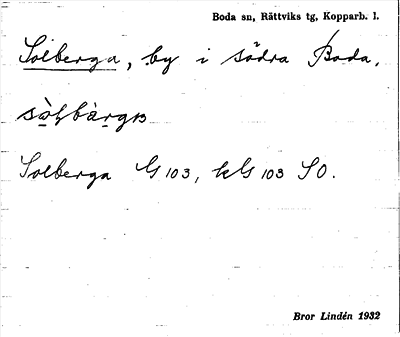 Boda sn, Rättviks tg, Kopparb. l.
Solberga, by i södra Boda.
Solberga G 103, kG 103 SO.
Bror Lindén 1932